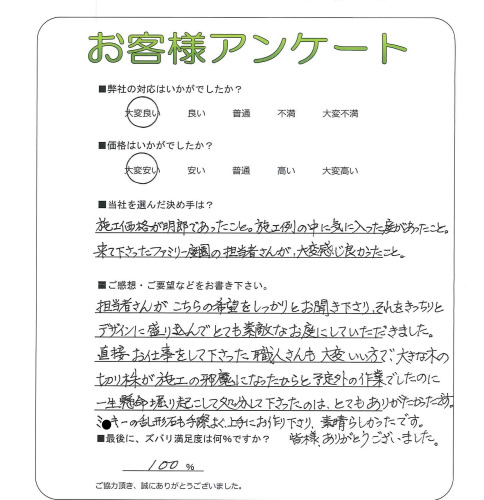 お客様アンケート
■弊社の対応はいかがでしたか?
大変良い 良い 普通 不満 大変不満
■価格はいかがでしたか?
大変安い 安い 普通 高い 大変高い
■当社を選んだ決め手は?
施工価格が明郎であったこと。施工例の中に気に入った庭があったこと。
来て下さったファミリー庭園の担当者さんが、大変感じ良かったこと。
■ご感想・ご要望などをお書き下さい。
担当者さんが こちらの希望をしっかりとお聞き下さり、それをきっちりと
デザインに盛り込んでとても素敵なお庭にしていただきました。
直接お仕事をして下さった 職人さんも 大変いい方で、大きな木の
切り株が施工の邪魔になったからと予定外の作業でしたのに
一生懸命堀り起こして処分して下さったのは、とてもありがたかったです。
ミッキーの乱形石も手際よく上手にお作り下さり、素晴らしかったです。
■最後に、ズバリ満足度は何%ですか? 皆様、ありがとうございました。
100 %
ご協力頂き、誠にありがとうございました。